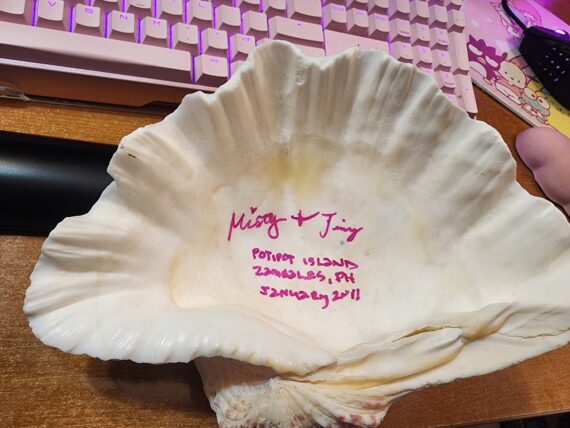 Misty + Jing
POTIPOT ISLAND
ZAMBALES, PH
JANUARY 2011